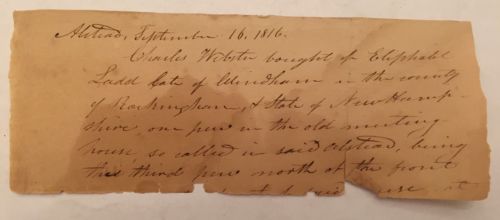 Alstead, September 16, 1816.
Charles Webster bought of Eliphalet
Ladd late of Windham in the county
of Rockingham, & State of New Hamp-
shire, one pew in the old meeting
house so called in said Alstead, being
the third pew north of the front